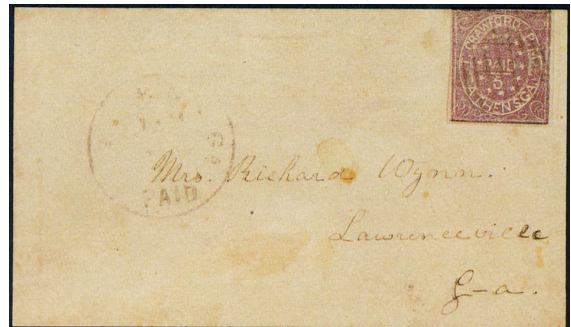 CRAWFORD, P.M.
PAID
5
ATHENS, GA.
PAID
Mrs. Richard Wynn.
Lawrenceville
Ga.